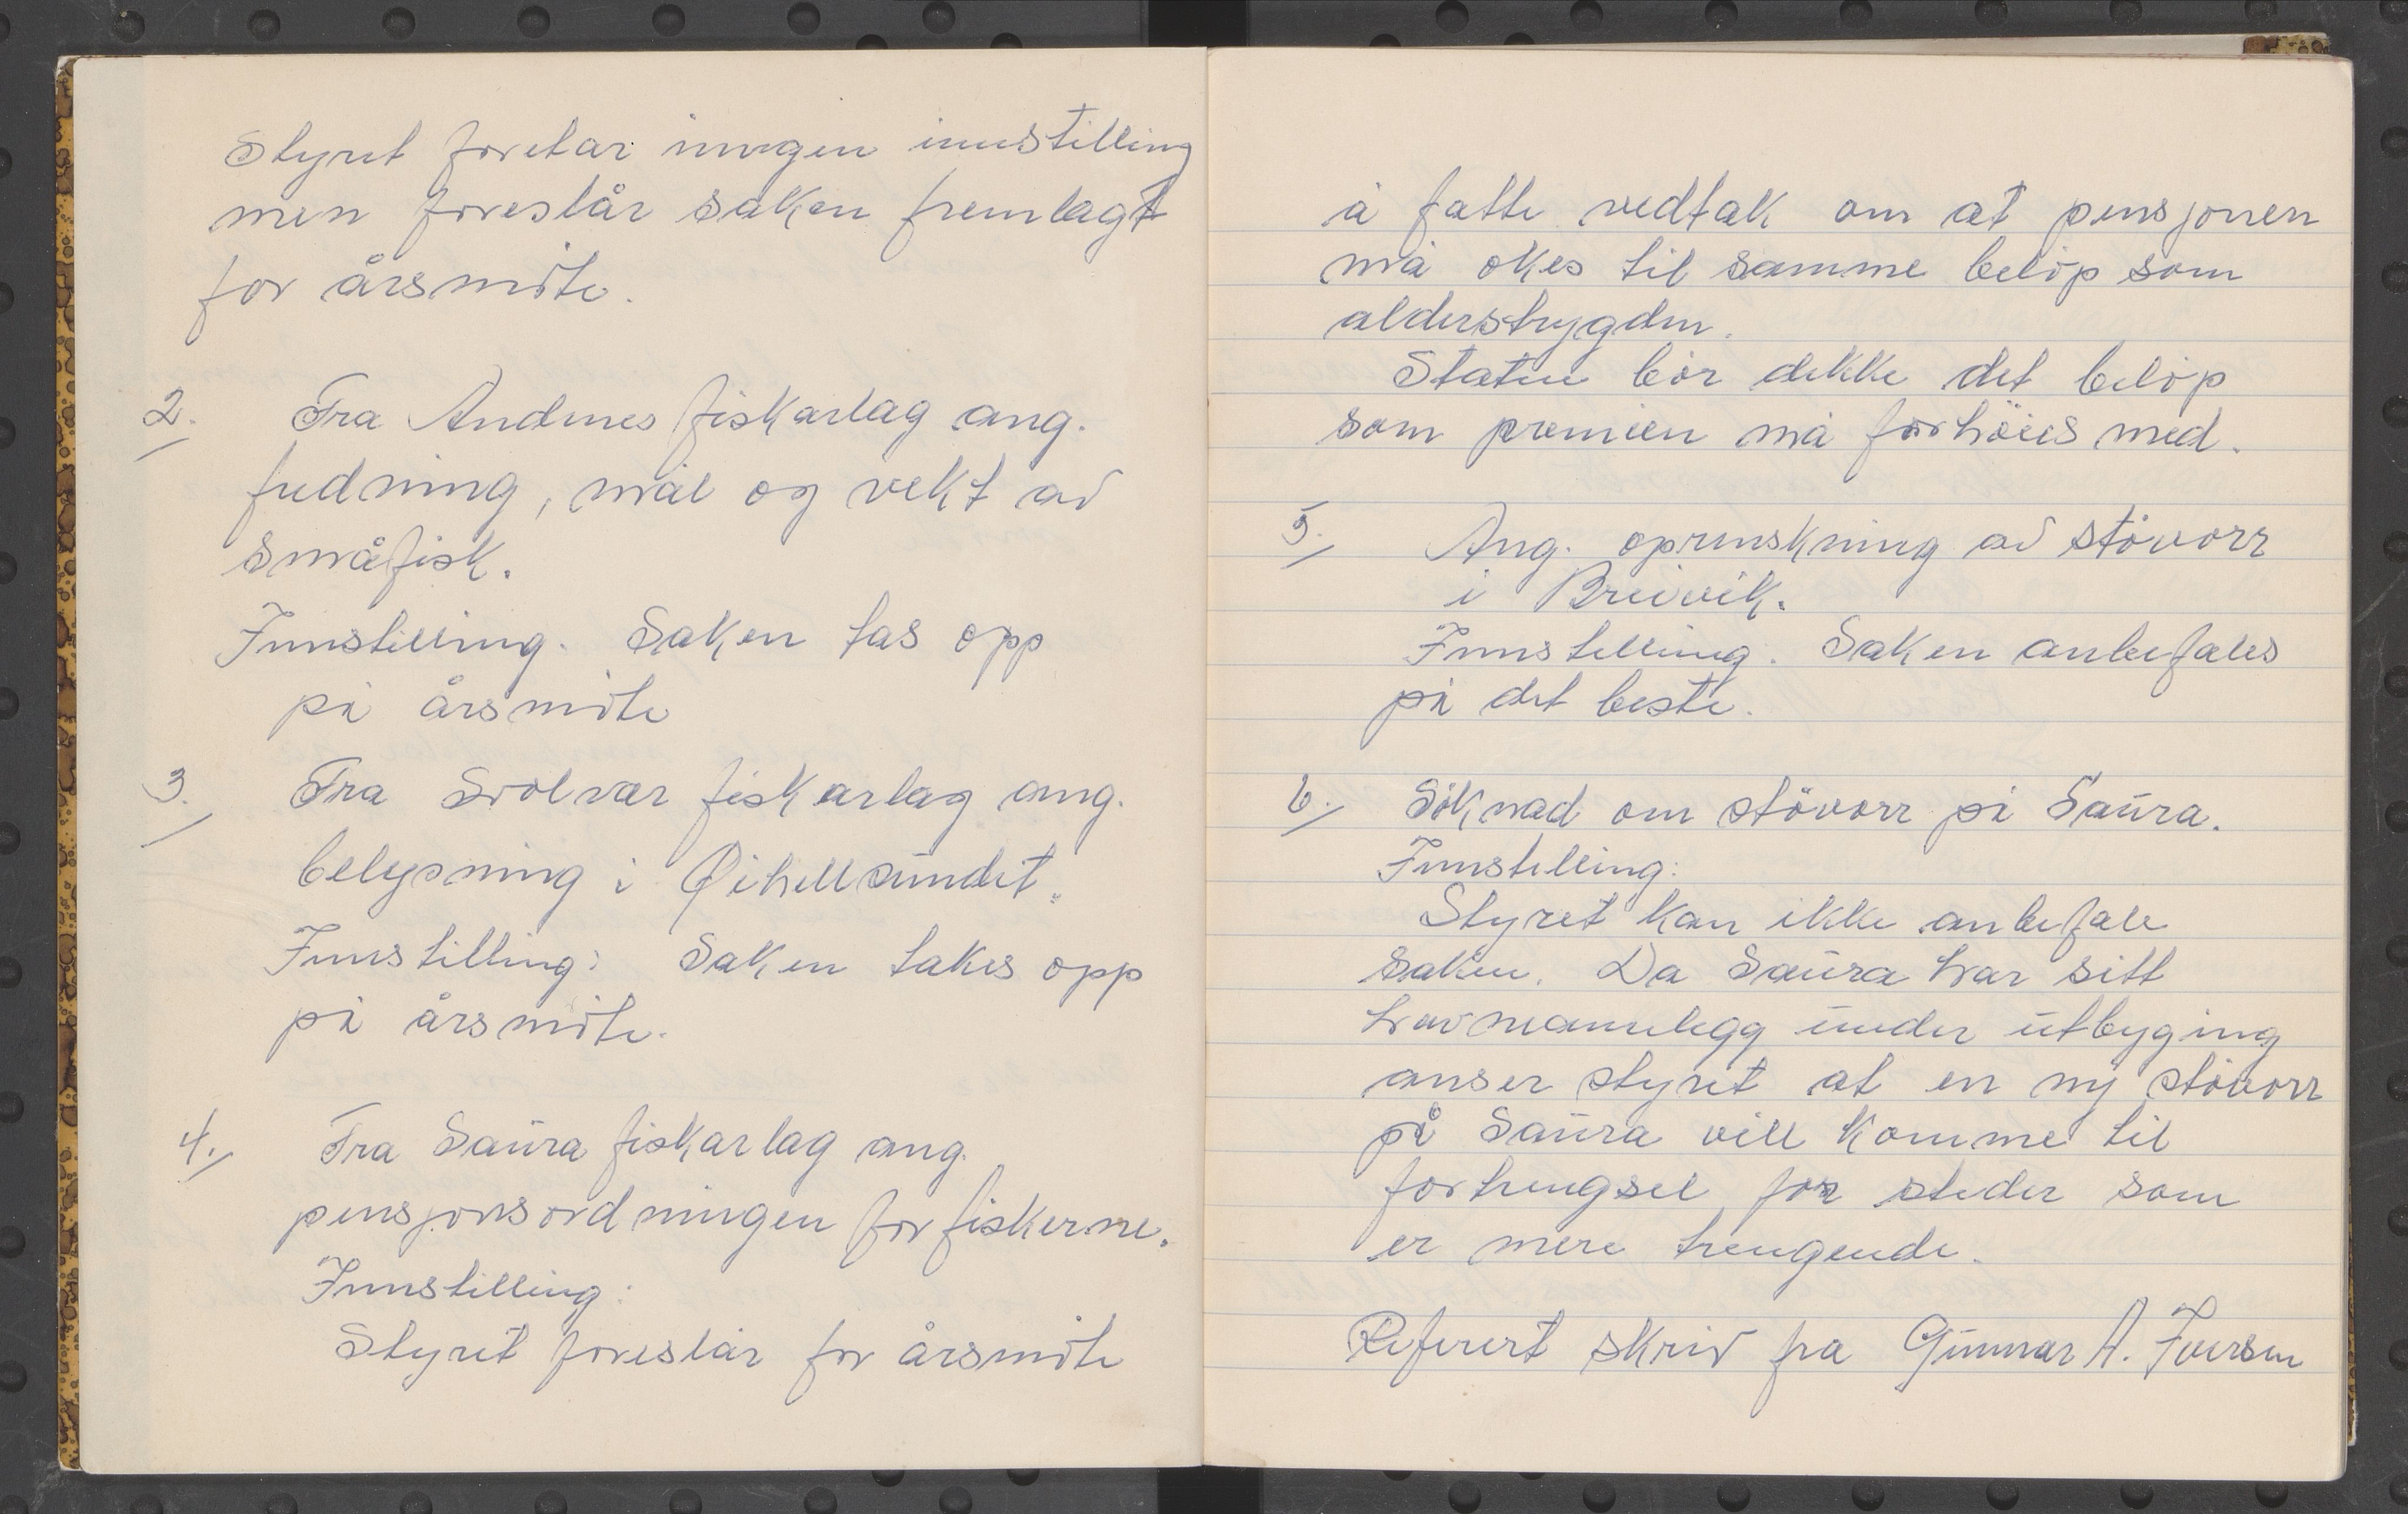 Styret foretar inngen innstilling
men foreslår saken fremlagt
for årsmöte.
2. Fra Andenes fiskarlag ang.
fredning, mål og vekt av
småfisk.
Innstilling. Saken tas opp
på årsmöte
3. Fra Svolvær fiskarlag ang.
belysning i Øihellsundet.
Innstilling: Saken takes opp
på årsmöte.
4. Fra Saura fiskarlag ang.
pensjonsordningen for fiskerne.
Innstilling:
Styret foreslår for årsmöte
å fatte vedtak om at pensjonen
må økes til samme belöp som
alderstrygden.
Staten bör dekke det belöp
som premien må forhöies med.
5. Ang. oprenskning av stövorr
i Breivik.
Innstilling. Saken anbefales
på det beste.
6. Söknad om stövorr på Saura.
Innstilling:
Styret kan ikke anbefale
saken. Da Saura har sitt
havneanlegg under utbyging
anser styret at en ny stövorr
på Saura vill komme til
fortrengsel for steder som
er mere trengende.
Referert skriv fra Gunnar A. Iversen